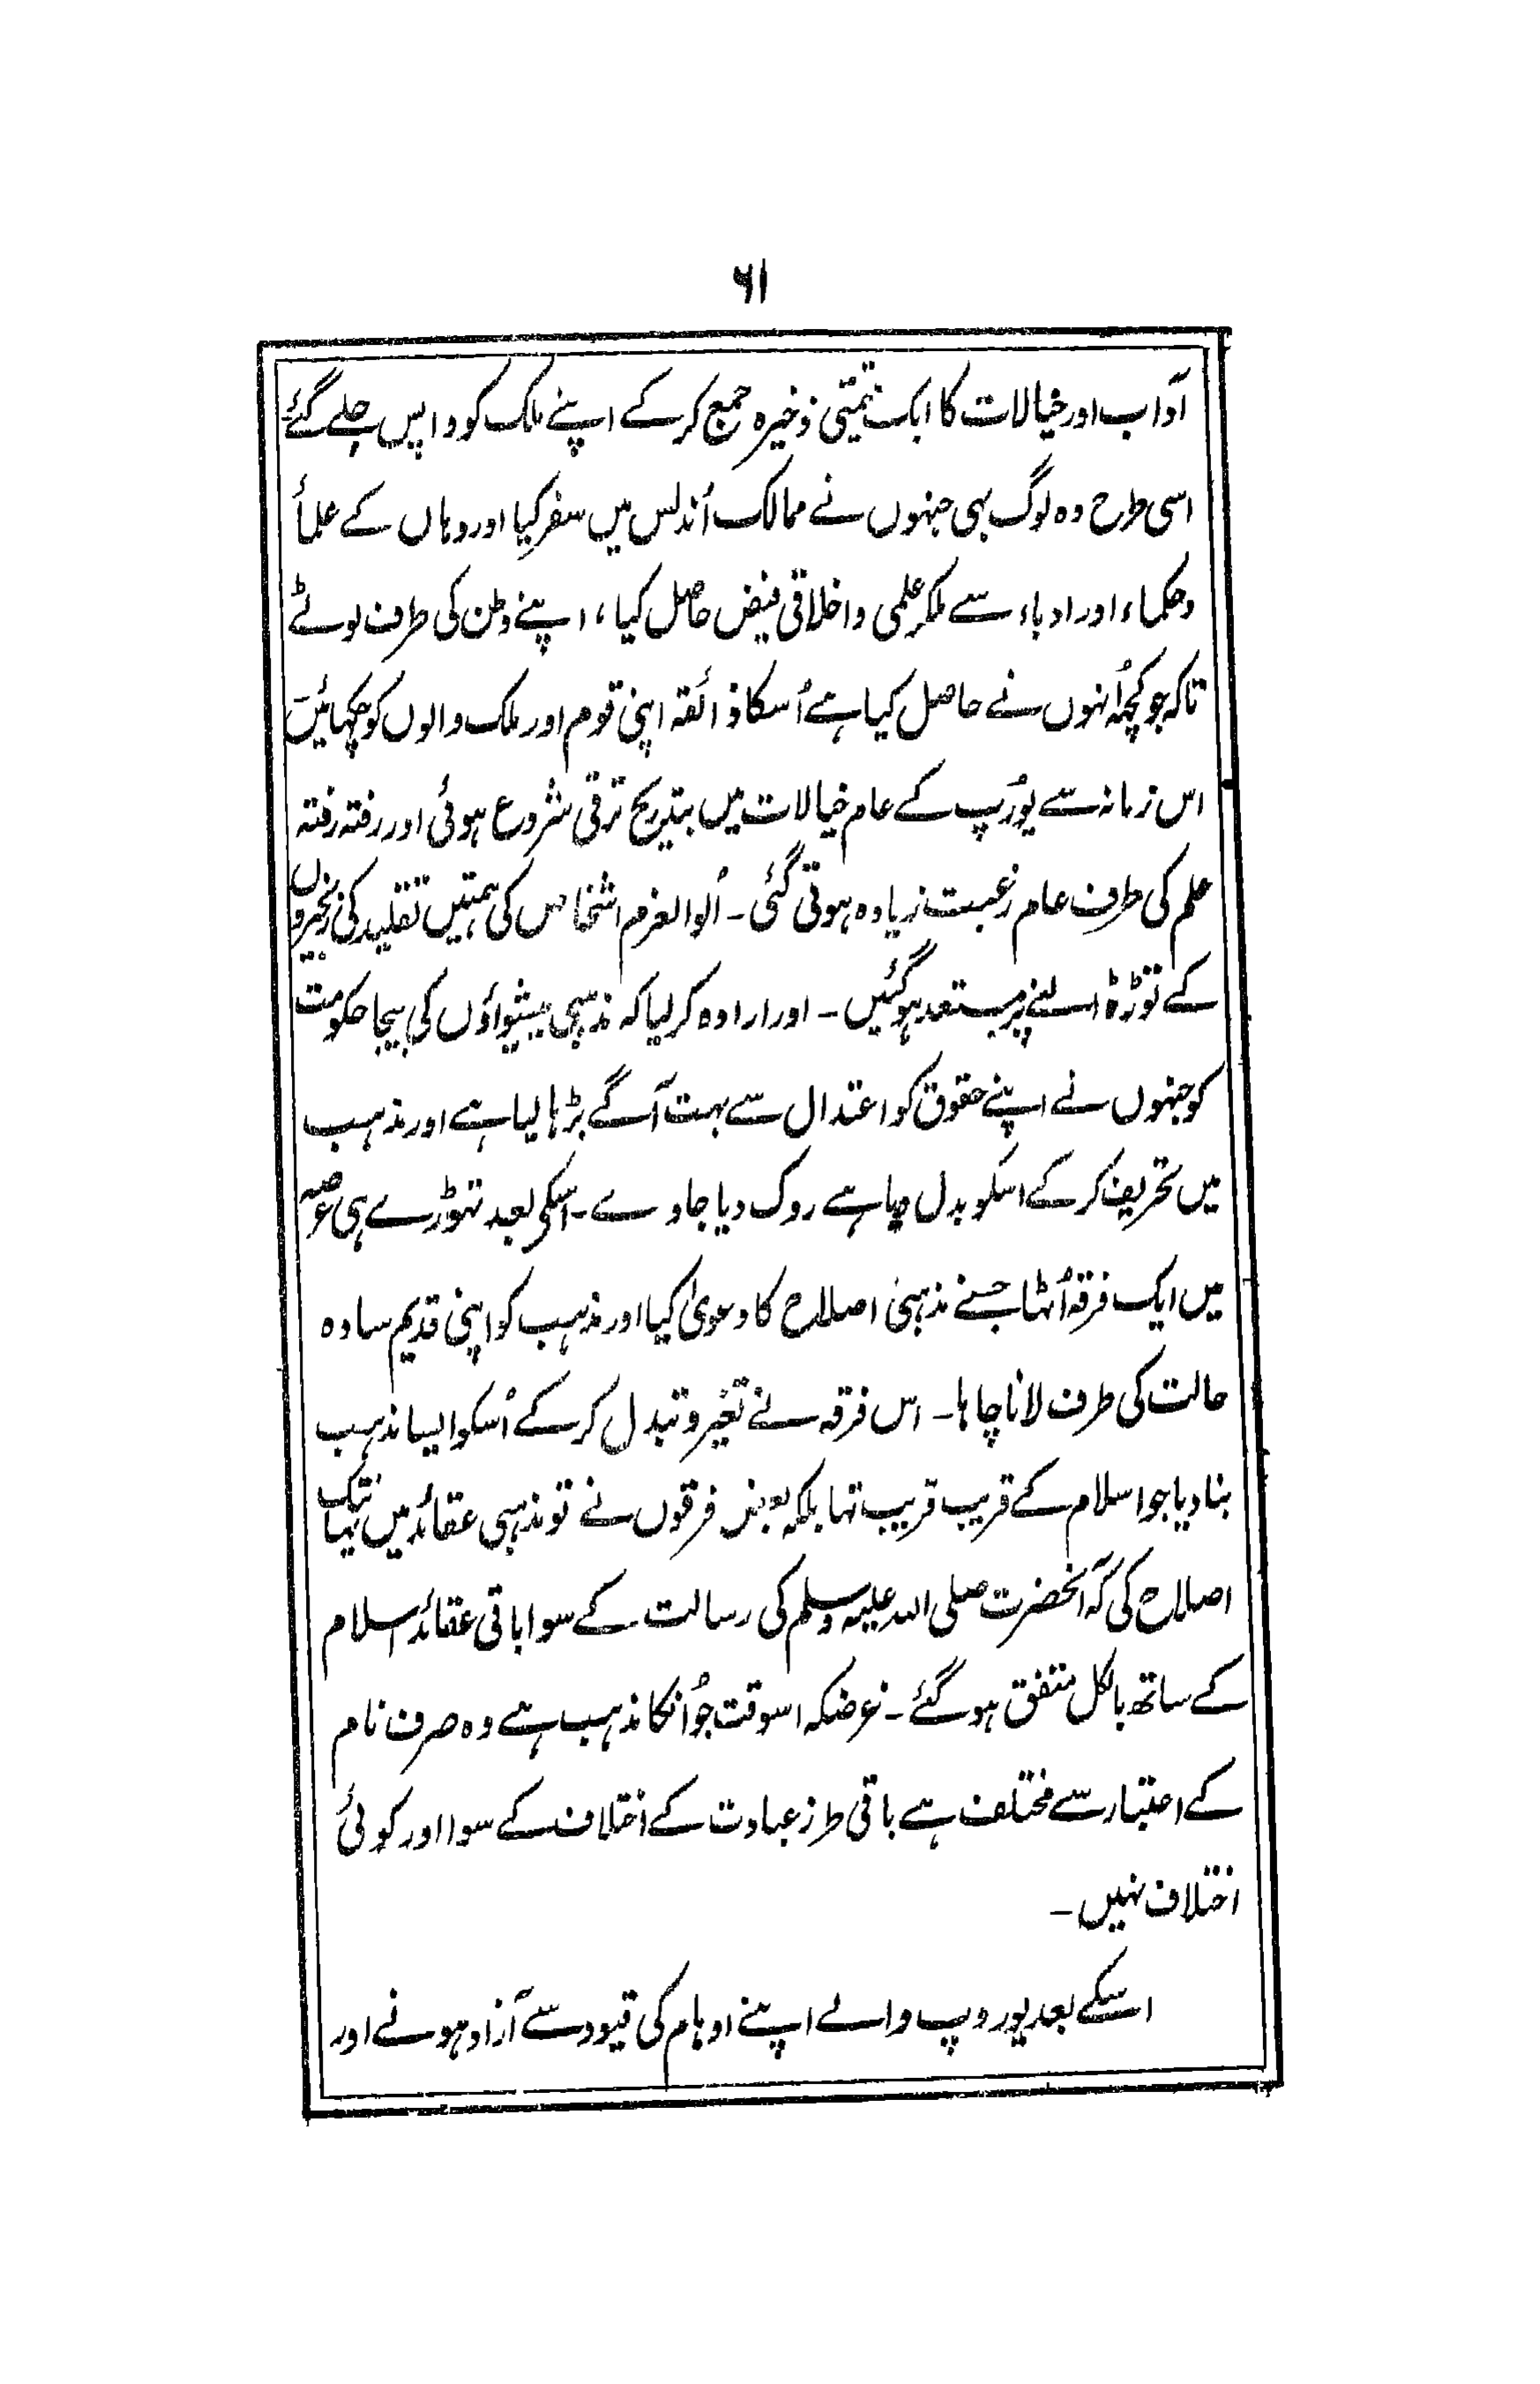 ۶۱
آداب اور خیالات کا ایک قیمتی ذخیرہ جمع کر کے اپنے ملک کو واپس چلے گئے
اسی طرح وہ لوگ بہی جنہوں نے ممالک اُندلس میں سفر کیا اور وہاں کے علمأ
وحکماء اور ادباء سے ملکر علمی واخلاقی فیض حاصل کیا، اپنے وطن کی طرف لوٹے
تاکہ جو کچہہ اُنہوں نے حاصل کیا ہے اُسکا ذائقہ اپنی قوم اور ملک والوں کو چکہائیں
اس زمانہ سے یوُرپ کے عام خیالات میں بتدریج ترقی شروع ہوئی اور رفتہ رفتہ
علم کی طرف عام رغبت زیادہ ہوتی گئی ۔ اُلوالعزم اشخاص کی ہمتیں تقلید کی زنجیروں
کے توڑ ڈالنے پر مستعد ہوگئیں ۔ اور ارادہ کر لیا کہ مذہبی پیشواؤں کی بیجا حکومت
کو جنہوں نے اپنے حقوق کو اعتدال سے بہت آگے بڑہا لیا ہے اور مذہب
میں تحریف کر کے اسکو بدل دیا ہے روک دیا جاوے ۔ اسکی بعد تہوڑے ہی عرصہ
میں ایک فرقہ اُٹہا جسنے مذہبی اصلاح کا دعویٰ کیا اور مذہب کو اپنی قدیم سادہ
حالت کی طرف لانا چاہا ۔ اس فرقہ نے تغیر و تبدل کر کے اُسکو ایسا مذہب
بنا دیا جو اسلام کے قریب قریب تہا بلکہ بعض فرقوں نے تو مذہبی عقائد میں یہانتک
اصلاح کی کہ آنحضرت صلی اللہ علیہ وسلم کی رسالت کے سوا باقی عقائد اسلام
کے ساتھ بالکل متفق ہو گئے ۔ غرضکہ اسوقت جو اُنکا مذہب ہے وہ صرف نام
کے اعتبار سے مختلف ہے باقی طرز عبادت کے اختلاف کے سوا اور کوئی
اختلاف نہیں ۔
اسکے بعد یوروپ والے اپنے اوہام کی قیود سے آزاد ہونے اور